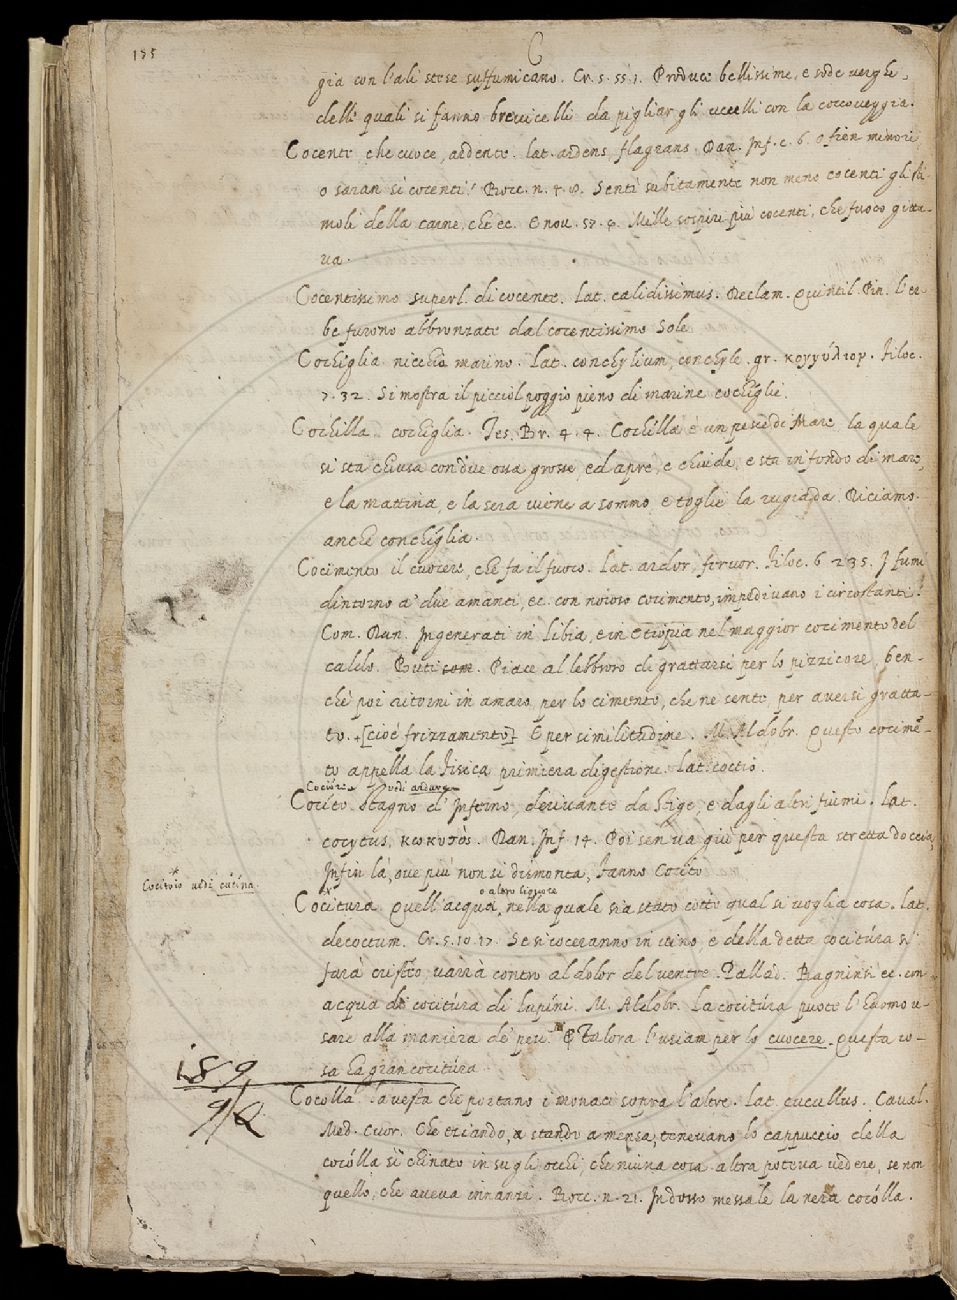 155
C
gia con l'ali stese suffumicano. Cr. 5. 55. 1. Produce bellissime, e sode verghe,
delli quali si fanno brevicelli da pigliar gli uccelli con la coccoveggia.
Cocente che cuoce, ardente. lat. ardens, flagrans. Dan. Inf. c. 6. o fien minori
o saran sì cocenti? Bocc. n. 4. 8. Sentì subitamente non meno cocenti gli sti-
moli della carne, che ec. E nov. 57. 9. Mille sospiri più cocenti, che fuoco gitta-
va.
Cocentissimo superl. di cocente. lat. calidissimus. Declam. Quintil. Pin. l'er-
be furono abbronzate dal cocentissimo Sole
Cochiglia nicchio marino. lat. conchylium, conchyle. gr. κογχύλιον. Filoc.
7. 32. Si mostra il picciol poggio pieno di marine cochiglie.
Cochilla. cochiglia. Tes. Br. 4. 4. Cochilla è un pesce di Mare, la quale
si sta chiusa con due ossa grosse, ed apre, e chiude, e sta in fondo di mare,
e la mattina, e la sera viene a sommo, e toglie la rugiada. Diciamo
anche conchiglia.
Cocimento il cuocere, che fa il fuoco. Lat. ardor, fervor. Filoc. 6. 235. I fumi
dintorno a' due amanti, ec. con noioso cocimento, impedivano i circostanti.
Com. Dan. Ingenerati in Libia, e in Etiopia nel maggior cocimento del
caldo. Buti com. Piace al lebbroso di grattarsi per lo pizzicore, ben-
chè poi ritorni in amaro, per lo cimento, che ne sente per aversi gratta-
to. [cioè frizzamento] E per similitudine. M. Aldobr. Questo cocimē-
to appella la Fisica primiera digestione. lat. coctio.
Cociore vedi ardore
Cocito Stagno d' Inferno, derivante da Stige, e dagli altri fiumi. Lat.
cocytus, κωκυτὸς. Dan. Inf. 14. Poi sen va giù per questa stretta doccia,
Infin là, ove più non si dismonta, Fanno Cocito
* Cocitoio vedi cucina
o altro liquore
Cocitura Quell'acqua, nella quale sia stato cotto qual si voglia cosa. lat.
decoctum. Cr. 5. 10. 17. Se si coceranno in vino, e della detta cocitúra si
farà cristeo, varrà contro al dolor del ventre. Pallad. Bagninsi ec. con
acqua di cocitúra di lupíni. M. Aldobr. la cocitúra puote l'Huomo u-
sare alla maniera de' pesci. E Talora l'usiam per lo cuocere. Questa co-
sa ha gran cocitúra.
159
Cocolla la vesta che portano i monaci sopra l'altre. lat. cucullus. Caval.
Med. Cuor. Che eziandio, a stando a mensa, tenevano lo cappuccio della
cocólla sì chinato in su gli occhi, che niuna cosa altra poteva vedere, se non
quello, che aveva innanzi. Bocc. n. 21. Indosso messale la nera cocólla.